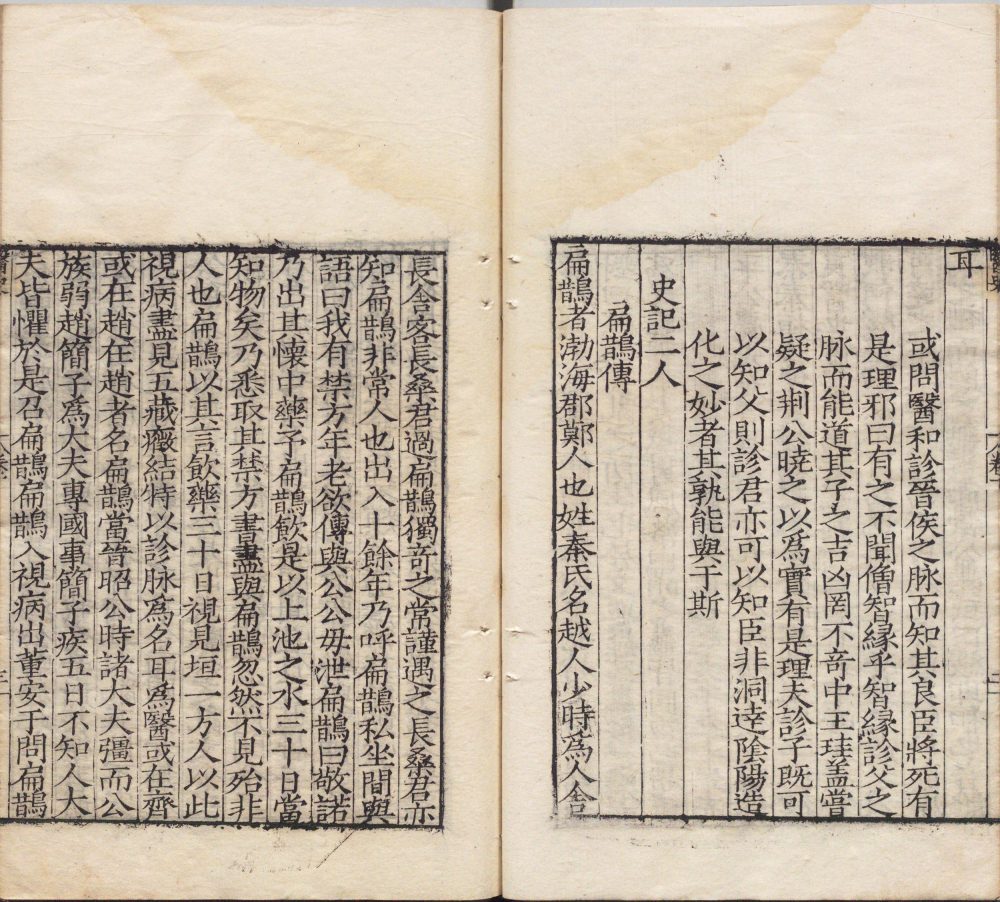 耳
或問醫和診晉侯之脉而知其良臣將死有
是理邪曰有之不聞僧智緣乎智緣診父之
脉而能道其子之吉凶罔不奇中王珪盖嘗
疑之荆公曉之以爲實有是理夫診子既可
以知父則診君亦可以知臣非洞逹陰陽造
化之妙者其孰能與于斯
史記二人
扁鵲傳
扁鵲者渤海郡鄭人也姓秦氏名越人少時爲人舍
長舍客長桑君過扁鵲獨奇之常謹遇之長桑君亦
知扁鵲非常人也出入十餘年乃呼扁鵲私坐間與
語曰我有禁方年老欲傳與公公毋泄扁鵲曰敬諾
乃出其懷中藥予扁鵲飲是以上池之水三十日當
知物矣乃悉取其禁方書盡與扁鵲忽然不見殆非
人也扁鵲以其言飲藥三十日視見垣一方人以此
視病盡見五藏癥結特以診脉爲名耳爲醫或在齊
或在趙在趙者名扁鵲當晉昭公時諸大夫彊而公
族弱趙簡子爲大夫專國事簡子疾五日不知人大
夫皆懼於是召扁鵲扁鵲入視病出董安于問扁鵲